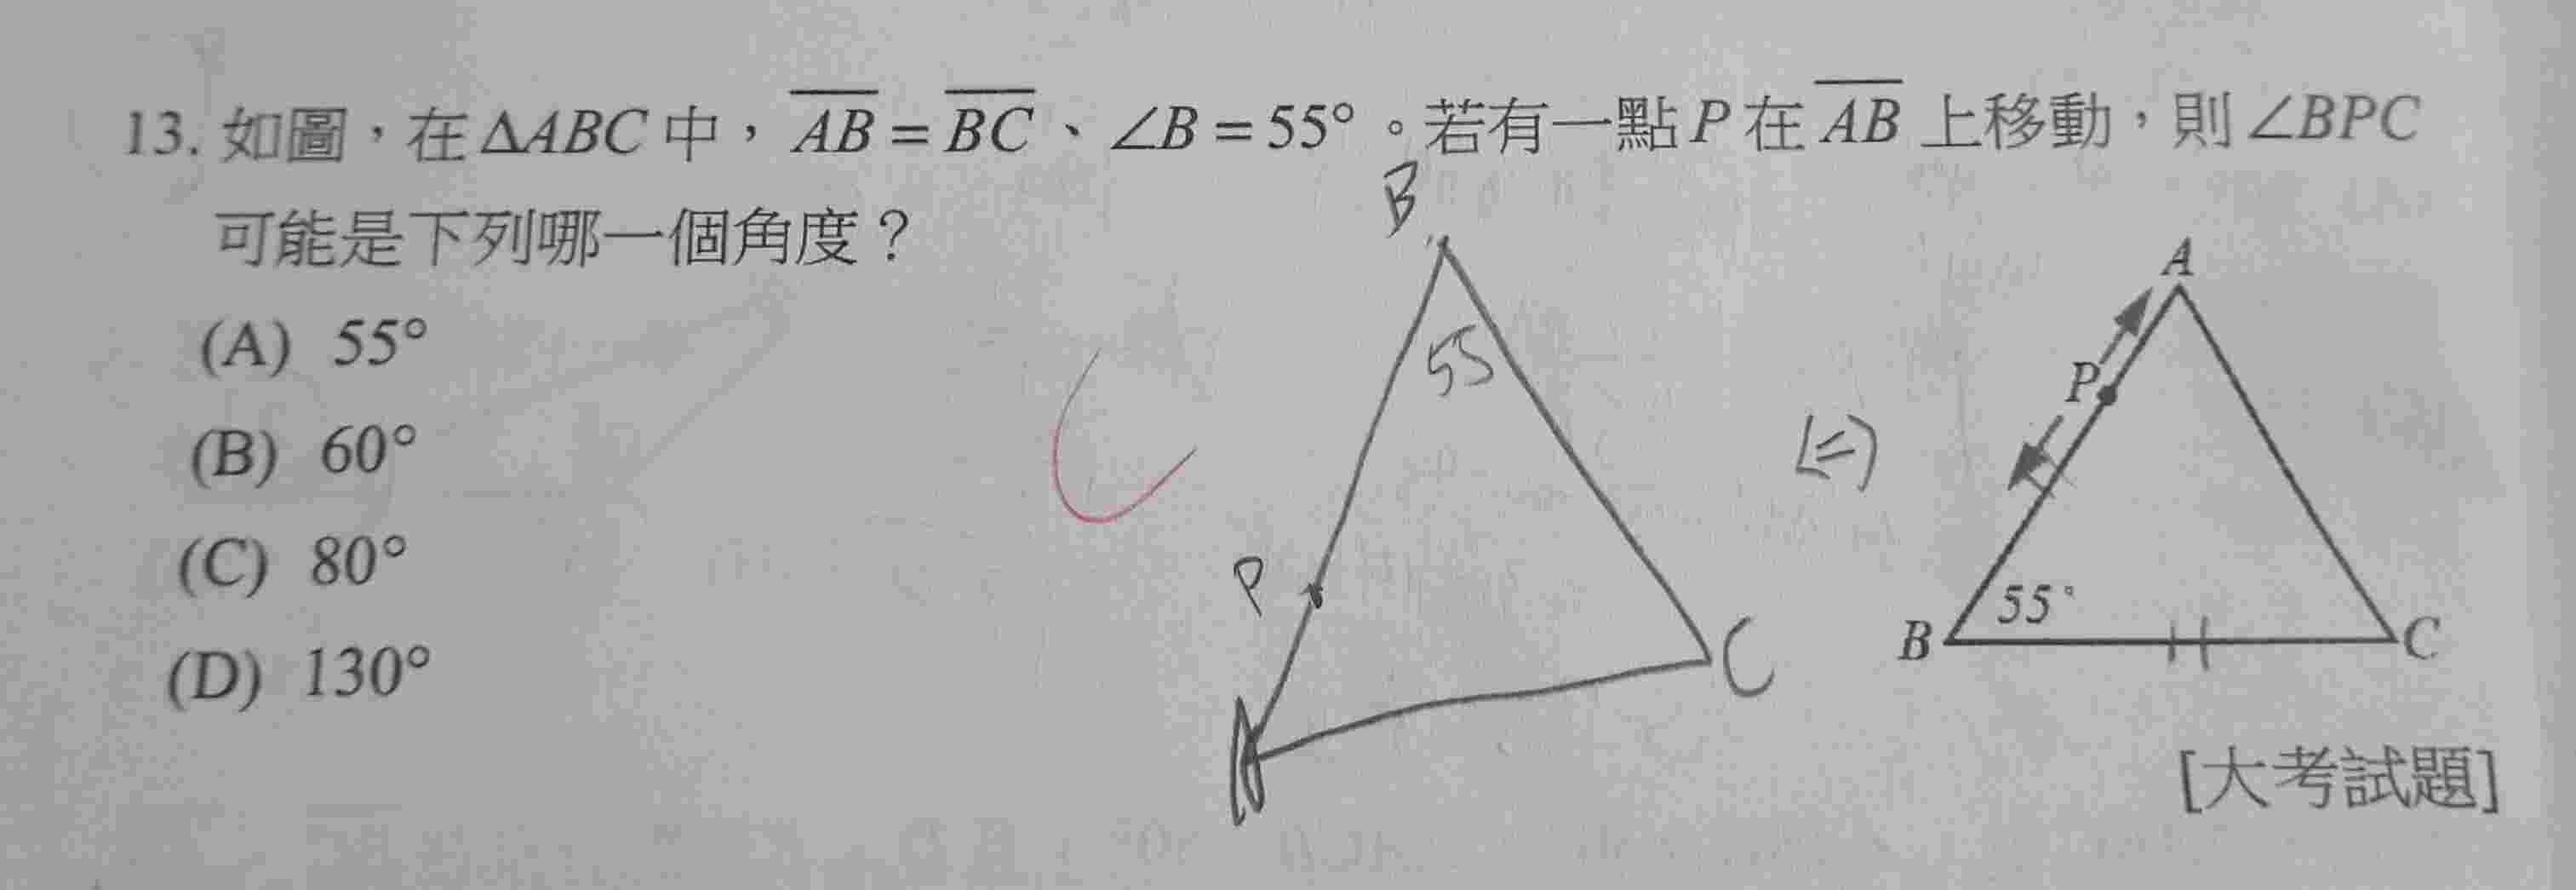 13. 如圖，在ΔABC中，AB = BC、∠B = 55°。若有一點P在AB上移動，則∠BPC
可能是下列哪一個角度？
(A) 55°
(B) 60°
(C) 80°
(D) 130°
B
55
P
A
C
(=)
A
P
B
55°
C
[大考試題]